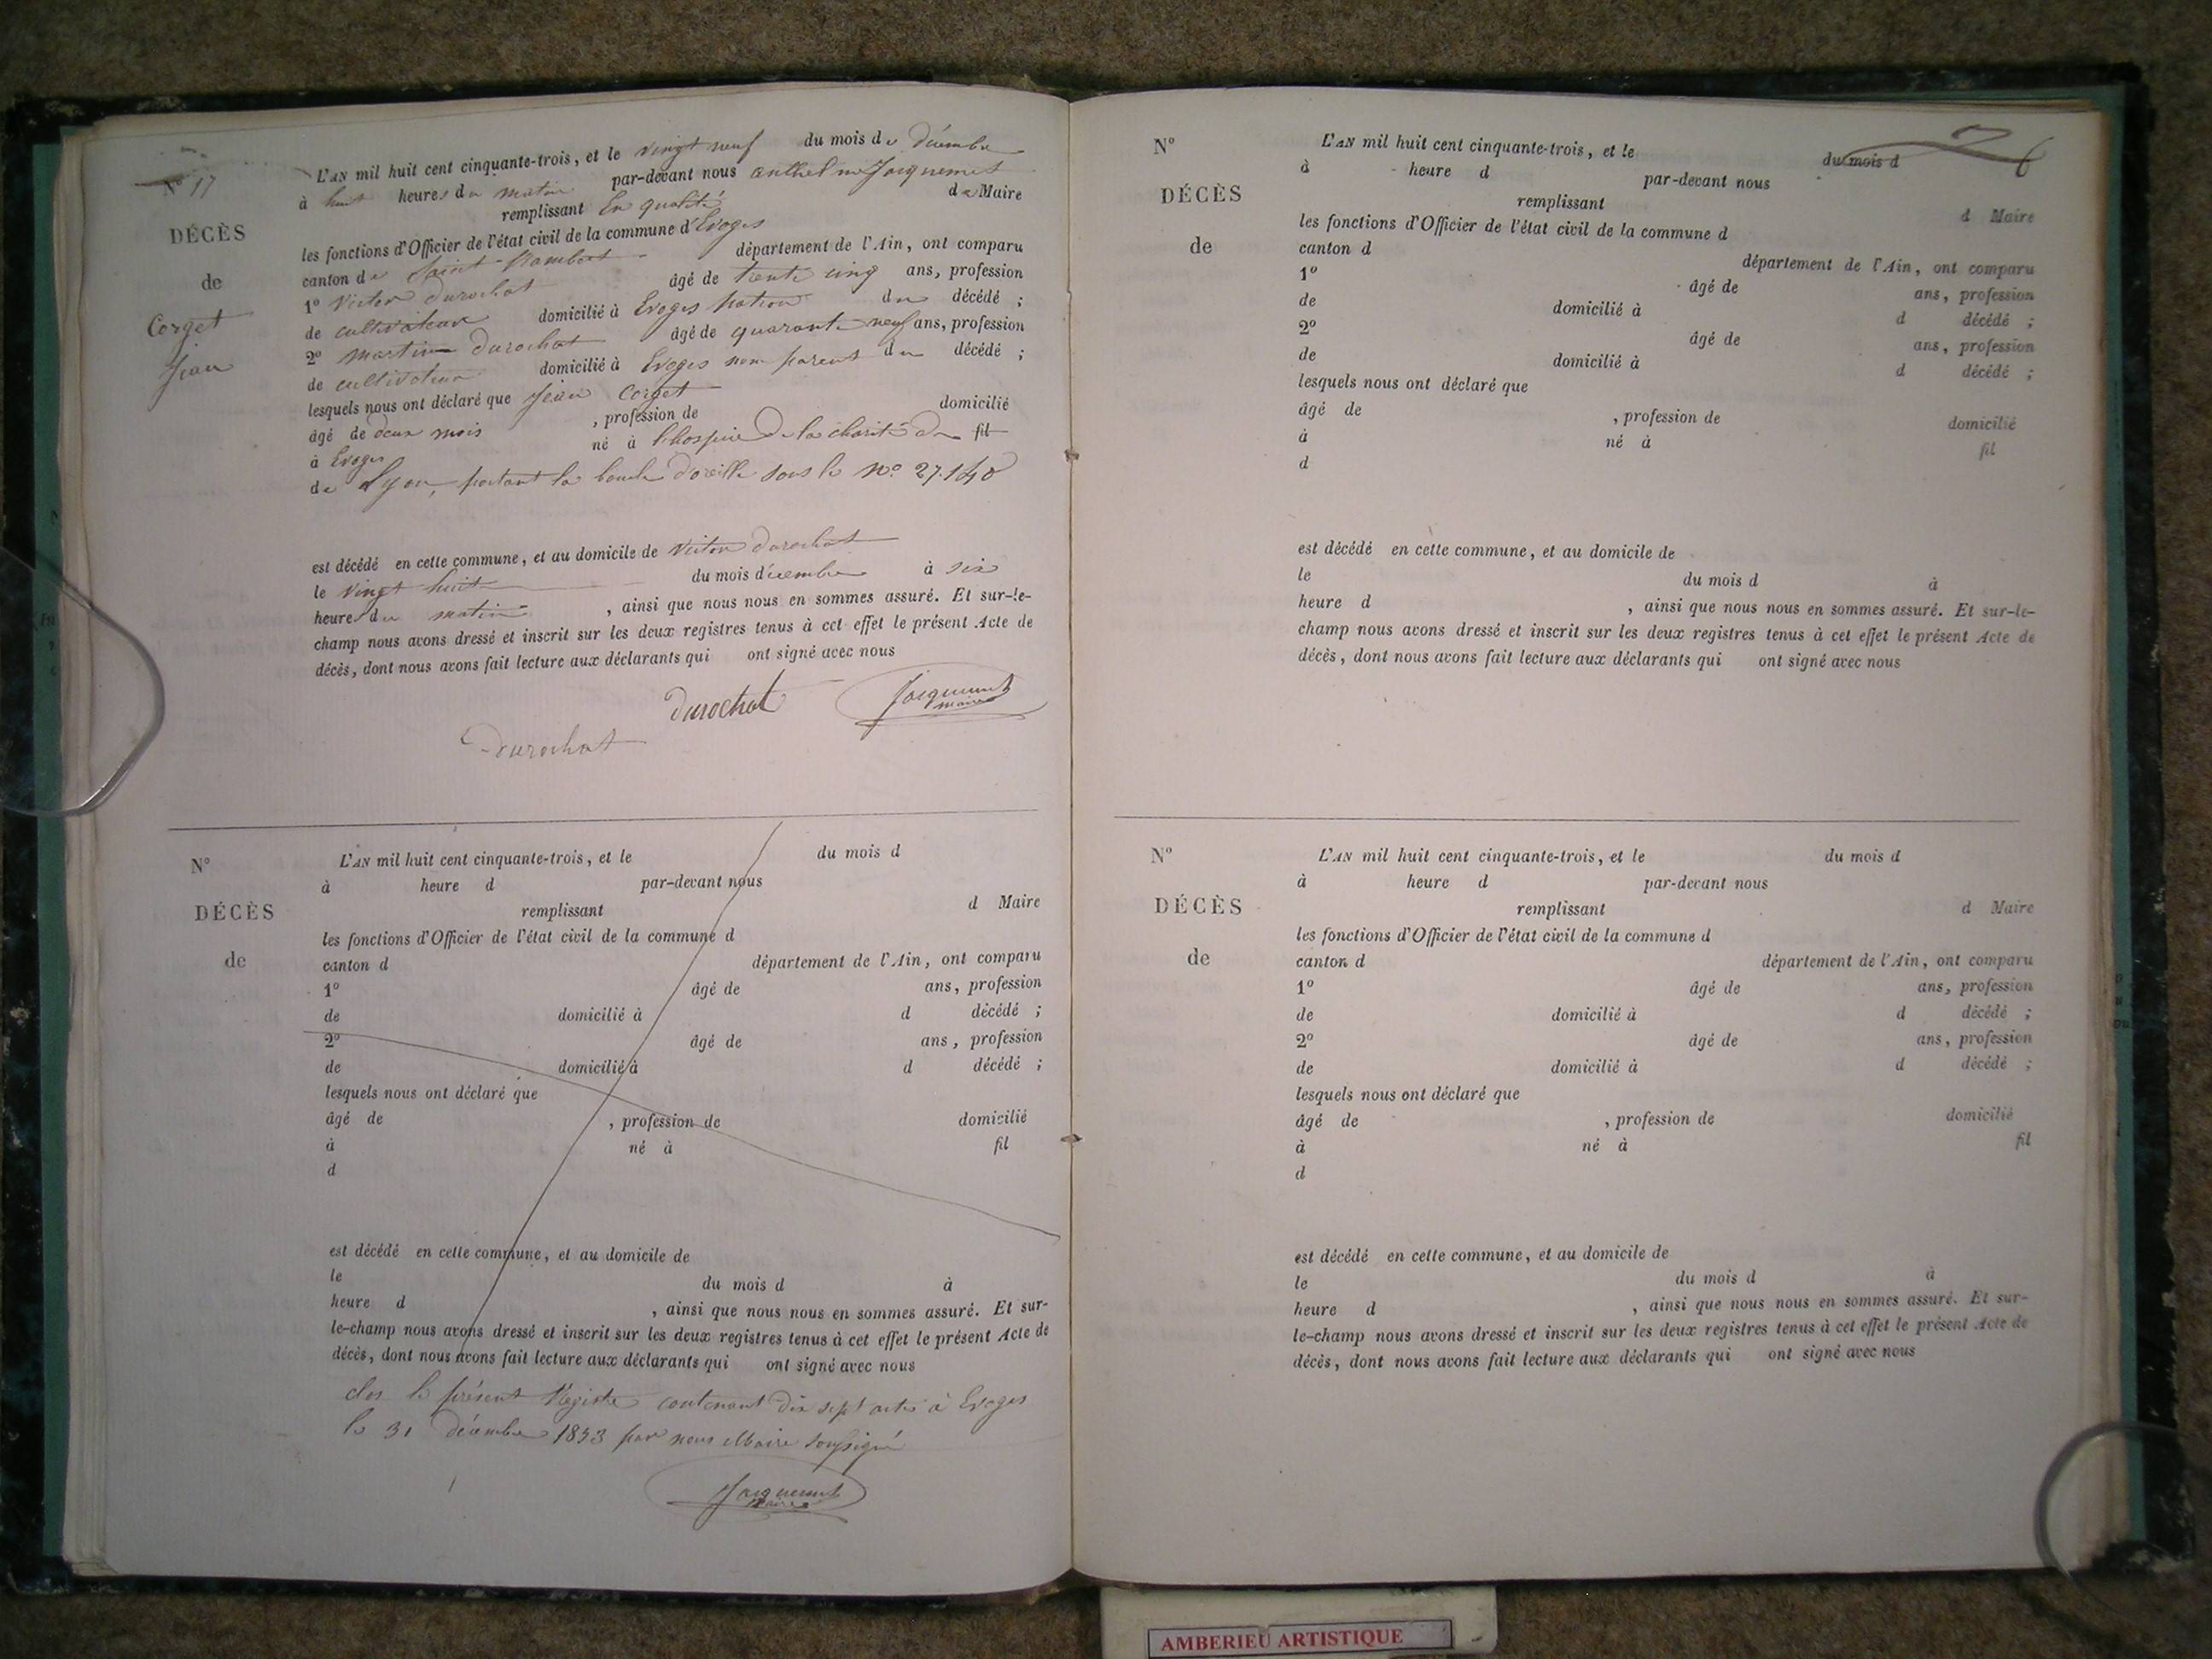 N° 17
DÉCÈS
de
Corget
Jean
L'AN mil huit cent cinquante-trois, et le vingt neuf du mois de décembre
à huit heures du matin par-devant nous anthelme Jacquemet
remplissant En qualité de Maire
les fonctions d'Officier de l'état civil de la commune d'Evoges
canton de Saint-Rambert département de l'Ain, ont comparu
1° Victor Durochat âgé de trente cinq ans, profession
de cultivateur domicilié à Evoges du décédé ;
2° martin Durochat âgé de quarante neuf ans, profession
de cultivateur domicilié à Evoges non parent du décédé ;
lesquels nous ont déclaré que Jean Corget
âgé de deux mois , profession de domicilié
à Evoges né à l'hospice de la charité fil
de Lyon, portant la boucle d'oreille sous le N° 27.140
est décédé en cette commune, et au domicile de Victor Durochat
le vingt huit du mois décembre à six
heures du matin , ainsi que nous nous en sommes assuré. Et sur-le-
champ nous avons dressé et inscrit sur les deux registres tenus à cet effet le présent Acte de
décès, dont nous avons fait lecture aux déclarants qui ont signé avec nous
Durochat Jacquemet
maire
Durochat
N°
DÉCÈS
de
L'AN mil huit cent cinquante-trois, et le du mois d
à heure d par-devant nous
remplissant d Maire
les fonctions d'Officier de l'état civil de la commune d
canton d département de l'Ain, ont comparu
1° âgé de ans, profession
de domicilié à d décédé ;
2° âgé de ans, profession
de domicilié à d décédé ;
lesquels nous ont déclaré que
âgé de , profession de domicilié
à né à fil
d
est décédé en cette commune, et au domicile de
le du mois d à
heure d , ainsi que nous nous en sommes assuré. Et sur-
le-champ nous avons dressé et inscrit sur les deux registres tenus à cet effet le présent Acte de
décès, dont nous avons fait lecture aux déclarants qui ont signé avec nous
clos le présent Registre contenant dix sept actes à Evoges
le 31 décembre 1853 par nous Maire soussigné
Jacquemet
maire
N°
DÉCÈS
de
L'AN mil huit cent cinquante-trois, et le du mois d
à heure d par-devant nous
remplissant d Maire
les fonctions d'Officier de l'état civil de la commune d
canton d département de l'Ain, ont comparu
1° âgé de ans, profession
de domicilié à d décédé ;
2° âgé de ans, profession
de domicilié à d décédé ;
lesquels nous ont déclaré que
âgé de , profession de domicilié
à né à fil
d
est décédé en cette commune, et au domicile de
le du mois d à
heure d , ainsi que nous nous en sommes assuré. Et sur-le-
champ nous avons dressé et inscrit sur les deux registres tenus à cet effet le présent Acte de
décès, dont nous avons fait lecture aux déclarants qui ont signé avec nous
N°
DÉCÈS
de
L'AN mil huit cent cinquante-trois, et le du mois d
à heure d par-devant nous
remplissant d Maire
les fonctions d'Officier de l'état civil de la commune d
canton d département de l'Ain, ont comparu
1° âgé de ans, profession
de domicilié à d décédé ;
2° âgé de ans, profession
de domicilié à d décédé ;
lesquels nous ont déclaré que
âgé de , profession de domicilié
à né à fil
d
est décédé en cette commune, et au domicile de
le du mois d à
heure d , ainsi que nous nous en sommes assuré. Et sur-
le-champ nous avons dressé et inscrit sur les deux registres tenus à cet effet le présent Acte de
décès, dont nous avons fait lecture aux déclarants qui ont signé avec nous
AMBERIEU ARTISTIQUE